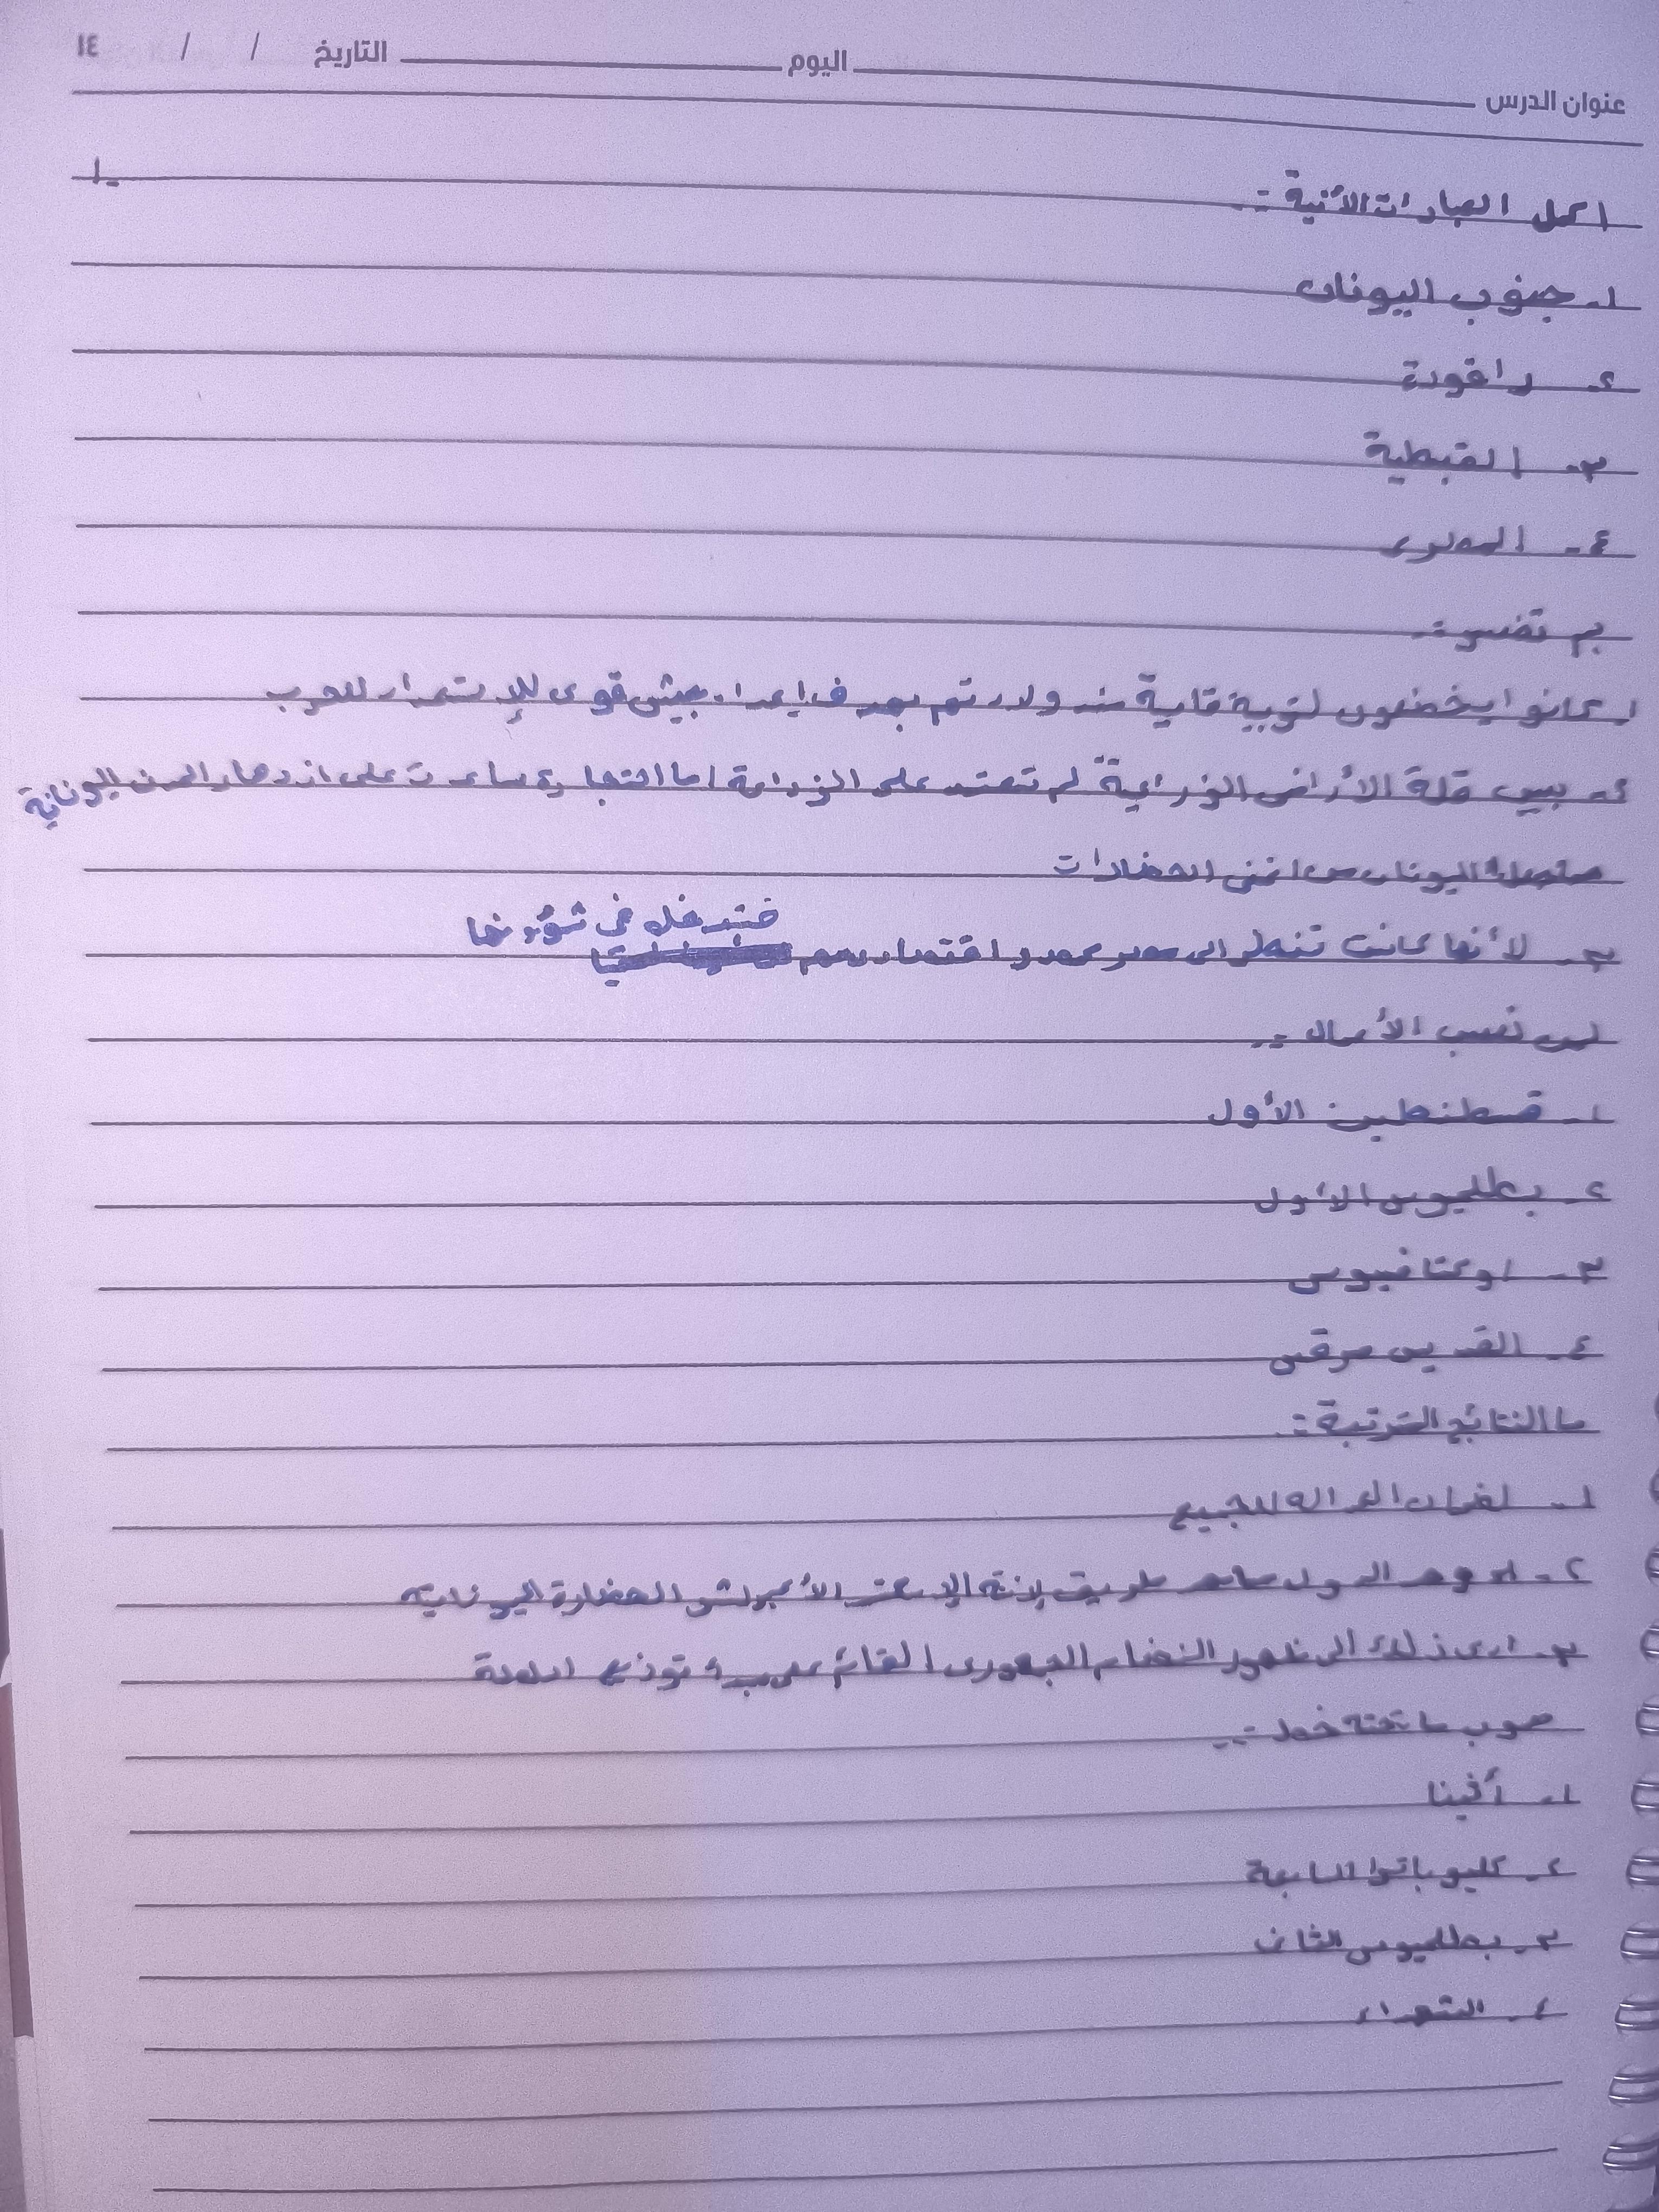 عنوان الدرس اليوم التاريخ / / ١٤
اكمل العبارات الأتية :-
١- جنوب اليونان
٢- راقودة
٣- القبطية
٤-
بم تفسر :-
١- كانوا يخضعون لتربية قاسية منذ ولادتهم بهدف إعداد جيش قوى للإستعداد للحرب
٢- بسبب قلة الأراضى الزراعية لم تعتمد على الزراعة اما التجارة ساعدت على ازدهار المدن اليونانية
اليونان من اغنى الحضارات
٣- لأنها كانت تنظر الى مصر كمورد اقتصادى مهم فتدخله فى شؤونها
لمن تنسب الأعمال :-
١- قسطنطين الأول
٢- بطلميوس الأول
٣- اوكتافيوس
٤- القديس مرقس
ما النتائج المترتبة :-
١- لضمان العداله للجميع
٢- الدول طريق لإنة الإسكندر الأكبر لنشر الحضارة اليونانيه
٣- ادى ذلك الى ظهور النضام الجمهورى القائم على مبدأ توزيع السلطة
صوب ما تحته خط :-
١- أثينا
٢- كليوباترا السابعة
٣- بطلميوس الثانى
٤- الشهداء